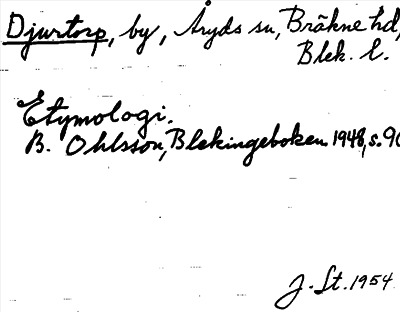 Djurtorp, by, Åryds sn, Bräkne hd,
Blek. l.
Etymologi.
B. Ohlsson, Blekingeboken 1948, s. 90
J. St. 1954